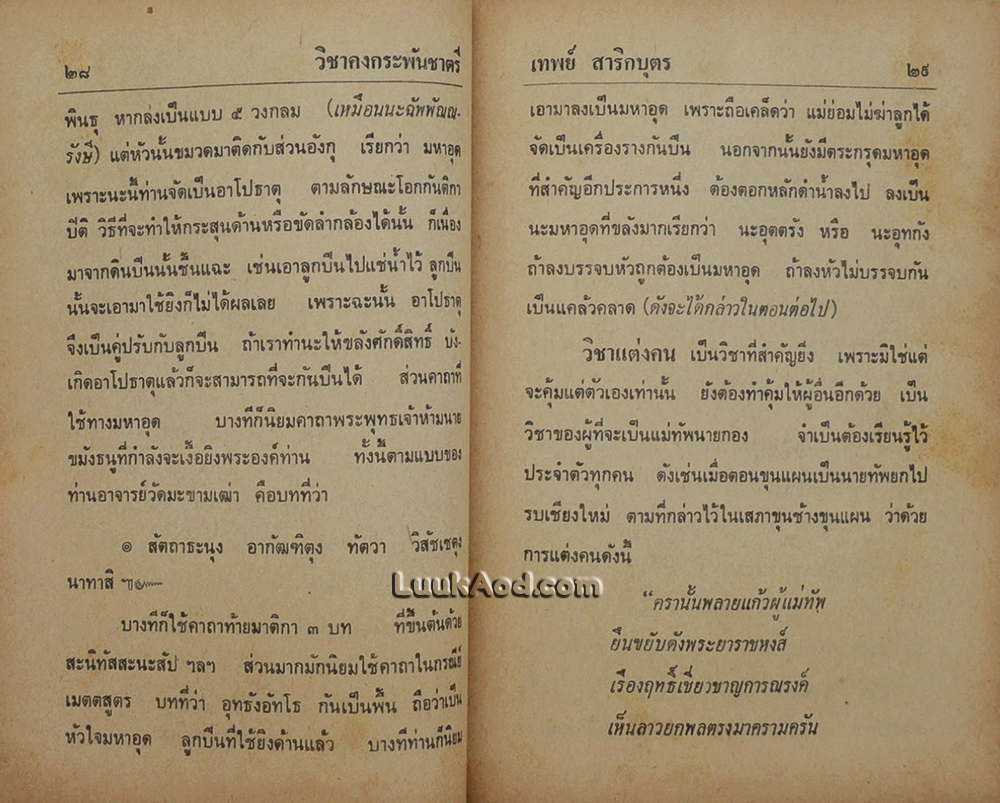 ๒๘ วิชาคงกระพันชาตรี
พินธุ หากลงเป็นแบบ ๕ วงกลม (เหมือนนะฉัพพัณณ-
รังษี) แต่หัวนั้นขมวดมาติดกับส่วนอังกุ เรียกว่า มหาอุด
เพราะนะนี้ท่านจัดเป็นอาโปธาตุ ตามลักษณะโอกกันติกา
ปีติ วิธีที่จะทำให้กระสุนด้านหรือขัดลำกล้องได้นั้น ก็เนื่อง
มาจากดินปืนนั้นชื้นแฉะ เช่นเอาลูกปืนไปแช่น้ำไว้ ลูกปืน
นั้นจะเอามาใช้ยิงก็ไม่ได้ผลเลย เพราะฉะนั้น อาโปธาตุ
จึงเป็นคู่ปรับกับลูกปืน ถ้าเราทำนะให้ขลังศักดิ์สิทธิ์ บัง-
เกิดอาโปธาตุแล้วก็จะสามารถที่จะกันปืนได้ ส่วนคาถาที่
ใช้ทางมหาอุด บางทีก็นิยมคาถาพระพุทธเจ้าห้ามนาย
ขมังธนูที่กำลังจะเงื้อยิงพระองค์ท่าน ทั้งนี้ตามแบบของ
ท่านอาจารย์วัดมะขามเฒ่า คือบทที่ว่า
๏ สัตถาธะนุง อากัฒฑิตุง ทัตวา วิสัชเชตุง
นาทาสิ ฯ๛
บางทีก็ใช้คาถาท้ายมาติกา ๓ บท ที่ขึ้นต้นด้วย
สะนิทัสสะนะสัป ฯลฯ ส่วนมากมักนิยมใช้คาถาในกรณีย์
เมตตสูตร บทที่ว่า อุทธังอัทโธ กันเป็นพื้น ถือว่าเป็น
หัวใจมหาอุด ลูกปืนที่ใช้ยิงด้านแล้ว บางทีท่านก็นิยม
เทพย์ สาริกบุตร ๒๙
เอามาลงเป็นมหาอุด เพราะถือเคล็ดว่า แม่ย่อมไม่ฆ่าลูกได้
จัดเป็นเครื่องรางกันปืน นอกจากนั้นยังมีตระกรุดมหาอุด
ที่สำคัญอีกประการหนึ่ง ต้องตอกหลักดำน้ำลงไป ลงเป็น
นะมหาอุดที่ขลังมากเรียกว่า นะอุตตรัง หรือ นะอุทกัง
ถ้าลงบรรจบหัวถูกต้องเป็นมหาอุด ถ้าลงหัวไม่บรรจบกัน
เป็นแคล้วคลาด (ดังจะได้กล่าวในตอนต่อไป)
วิชาแต่งคน เป็นวิชาที่สำคัญยิ่ง เพราะมิใช่แต่
จะคุ้มแต่ตัวเองเท่านั้น ยังต้องทำคุ้มให้ผู้อื่นอีกด้วย เป็น
วิชาของผู้ที่จะเป็นแม่ทัพนายกอง จำเป็นต้องเรียนรู้ไว้
ประจำตัวทุกคน ดังเช่นเมื่อตอนขุนแผนเป็นนายทัพยกไป
รบเชียงใหม่ ตามที่กล่าวไว้ในเสภาขุนช้างขุนแผน ว่าด้วย
การแต่งคนดังนี้
“ครานั้นพลายแก้วผู้แม่ทัพ
ยืนขยับดังพระยาราชหงส์
เรืองฤทธิ์เชี่ยวชาญการณรงค์
เห็นลาวยกพลตรงมาครามครัน
LuukAod.com